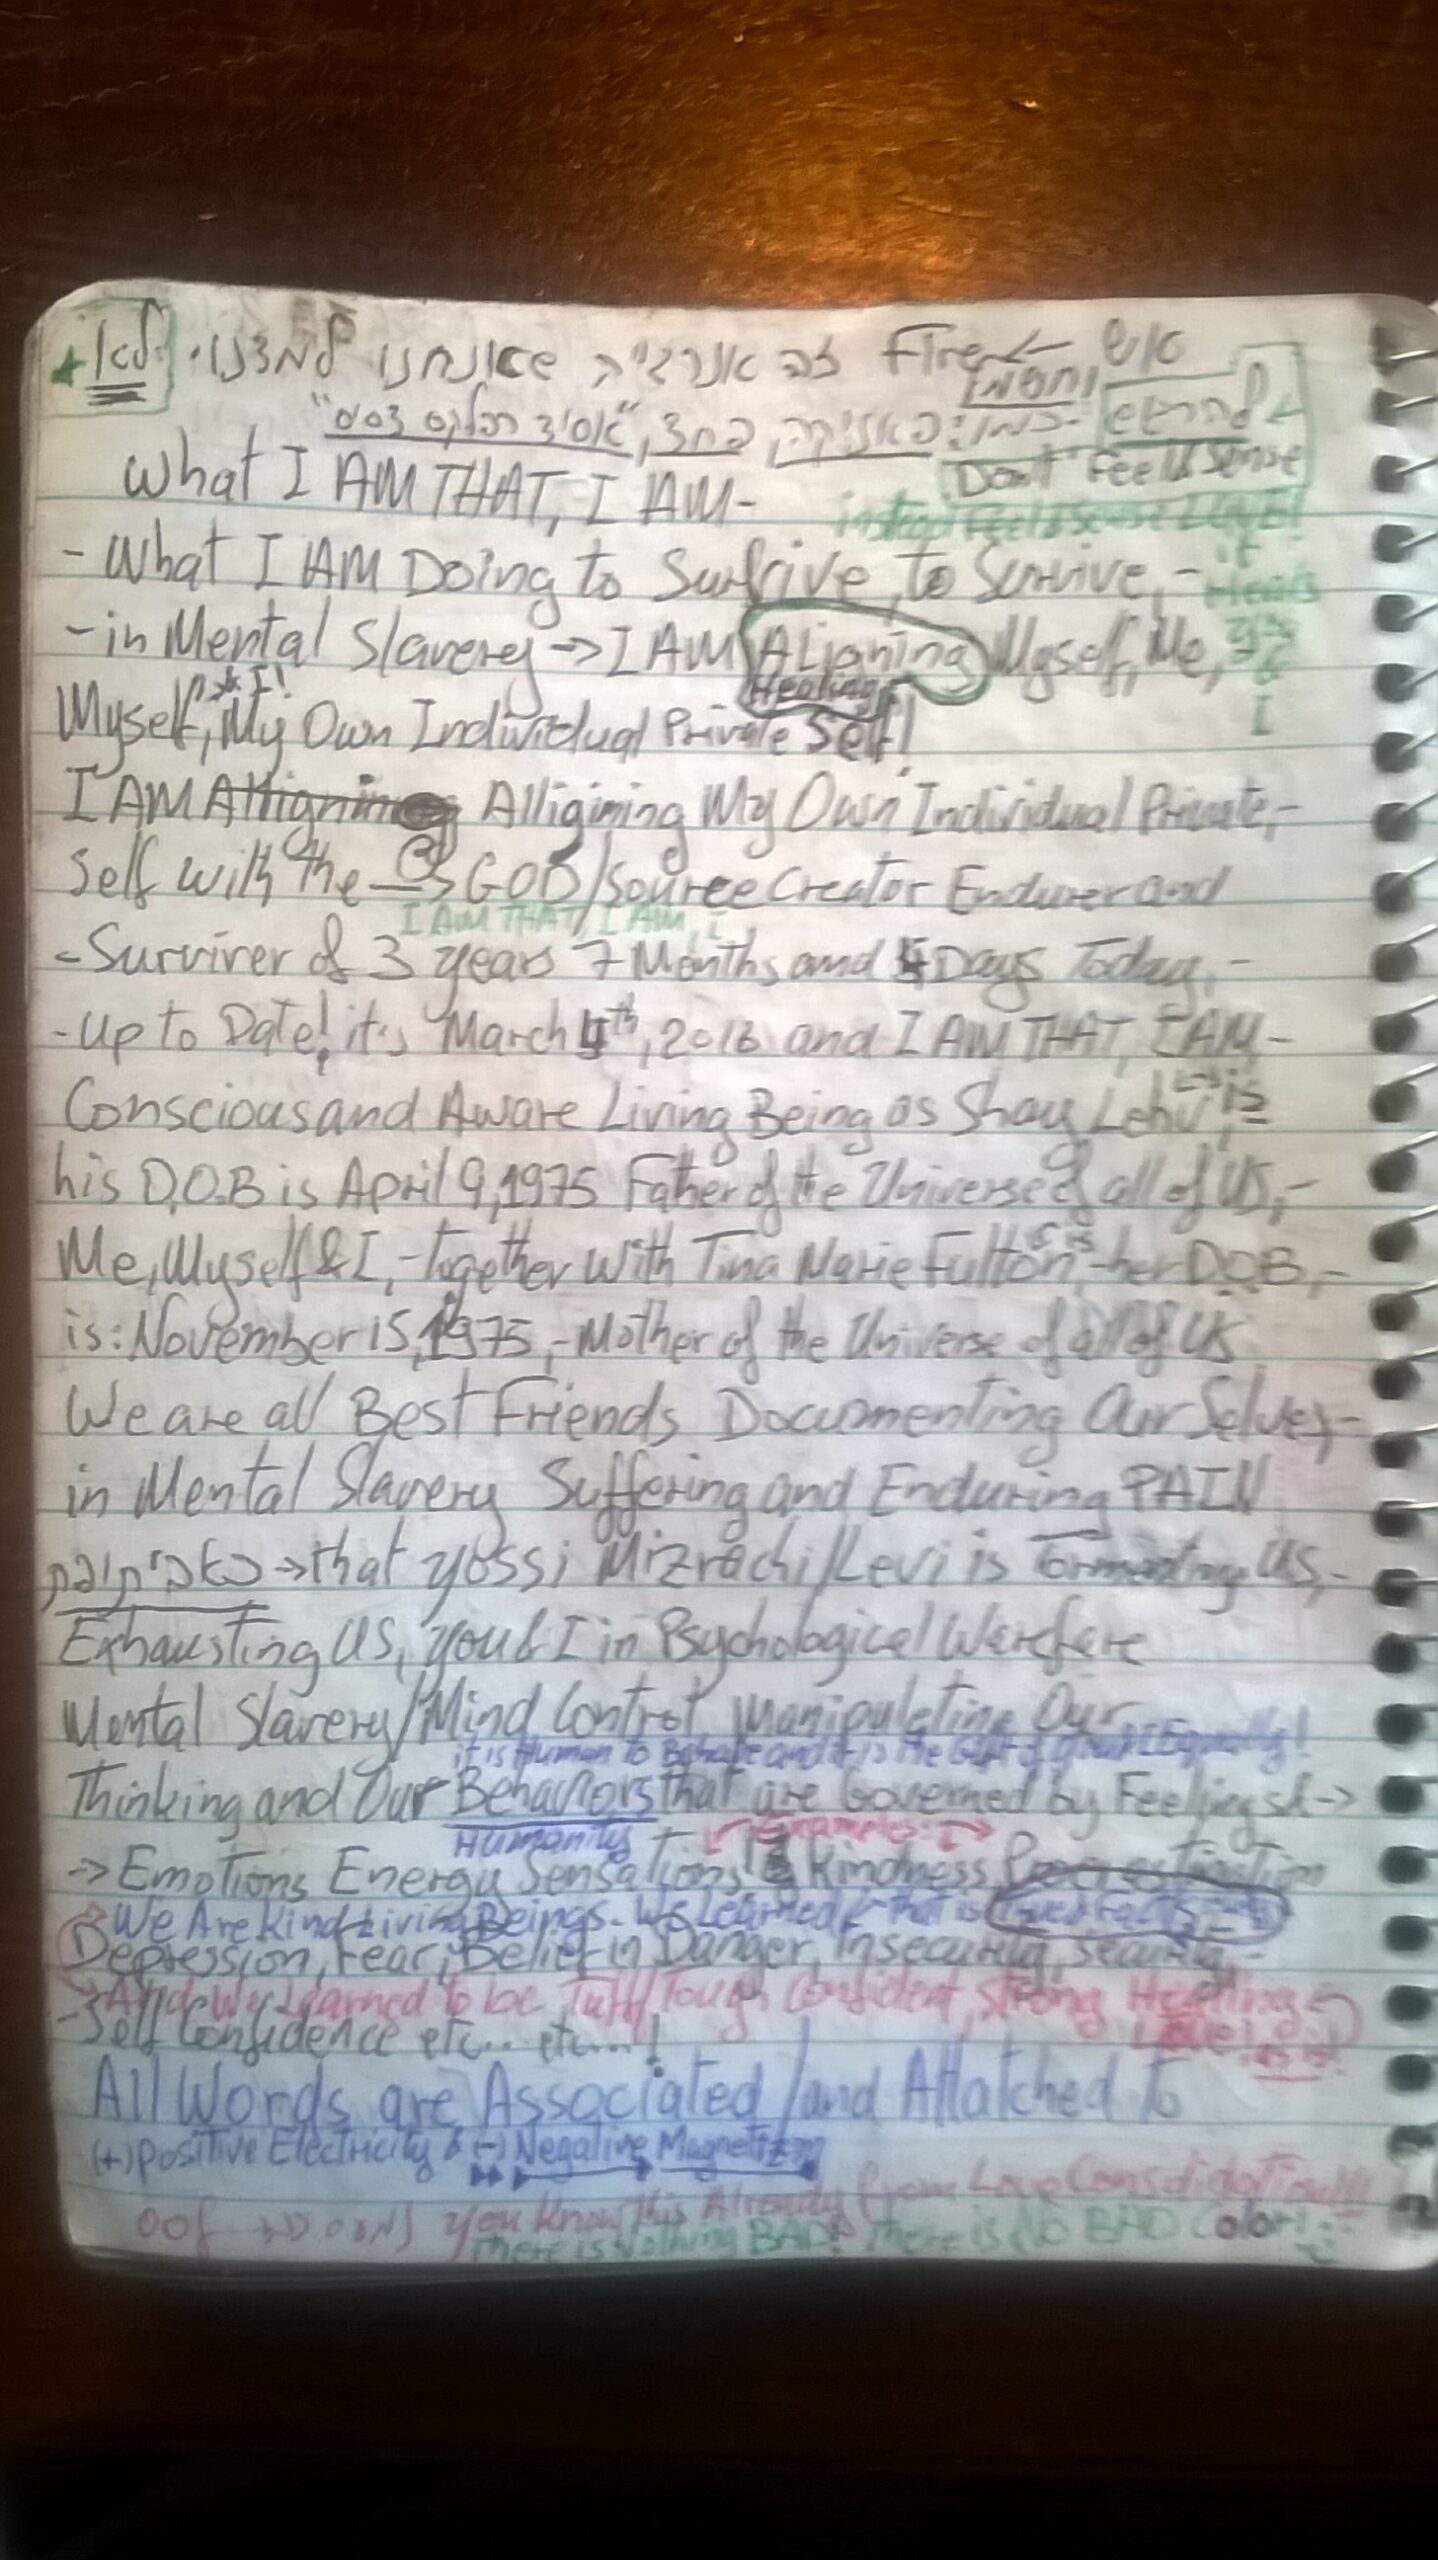 אש ← Fire זה אנרגיה שאנחנו למדנו לא
וחשמל
להרגיש כמו: פאניקה, פחד, "אסיד רפלקס
Don't Feel & Sense
What I AM THAT, I AM-
instead Feel & sense Light!
- What I AM Doing to Survive, to Survive, -
it Heals
- in Mental Slavery → I AM Aligning Myself, Me,
Healing
you & I
Myself, My Own Individual Private Self!
& I!
I AM Alligning Alligining My Own Individual Private,-
Self with the → GOD/Source Creator Endurer and
I AM THAT, I AM, i
- Surviver of 3 years 7 Months and 4 Days Today, -
- Up to Date! it's March 4th, 2016 and I AM THAT, I AM-
Conscious and Aware Living Being as Shay Lehv, is
his D.O.B is April 9, 1975 Father of the Universe of all of US,-
Me, Myself & I, - together With Tina Marie Fulton, - her D.O.B, -
is: November 15, 1975, - Mother of the Universe of all of US
We are all Best Friends Documenting Our Selves,-
in Mental Slavery Suffering and Enduring PAIN
→ that Yossi Mizrachi/Levi is Tormenting US, -
Exhausting US, you & I in Psychological Warefare
Mental Slavery/Mind Control, Manipulating Our
it is Human to Behave and it is the of you & I Equally!
Thinking and Our Behaviors that are Governed by Feelings & →
Humanity
Examples:
→ Emotions Energy Sensations Kindness Procrastination
We Are Kind Living Beings. We Learned that is
Depression, Fear, Belief in Danger, Insecurity, Security, -
And We Learned to be Tuff/Tough Confident, Strong Healing
- Self Confidence etc... etc....!
Love!
All Words are Associated/and Attatched to
(+) Positive Electricity & (-) Negative Magnetizm
You Know this Already from Love Considiration!!!
There is Nothing BAD! There is No BAD Color!